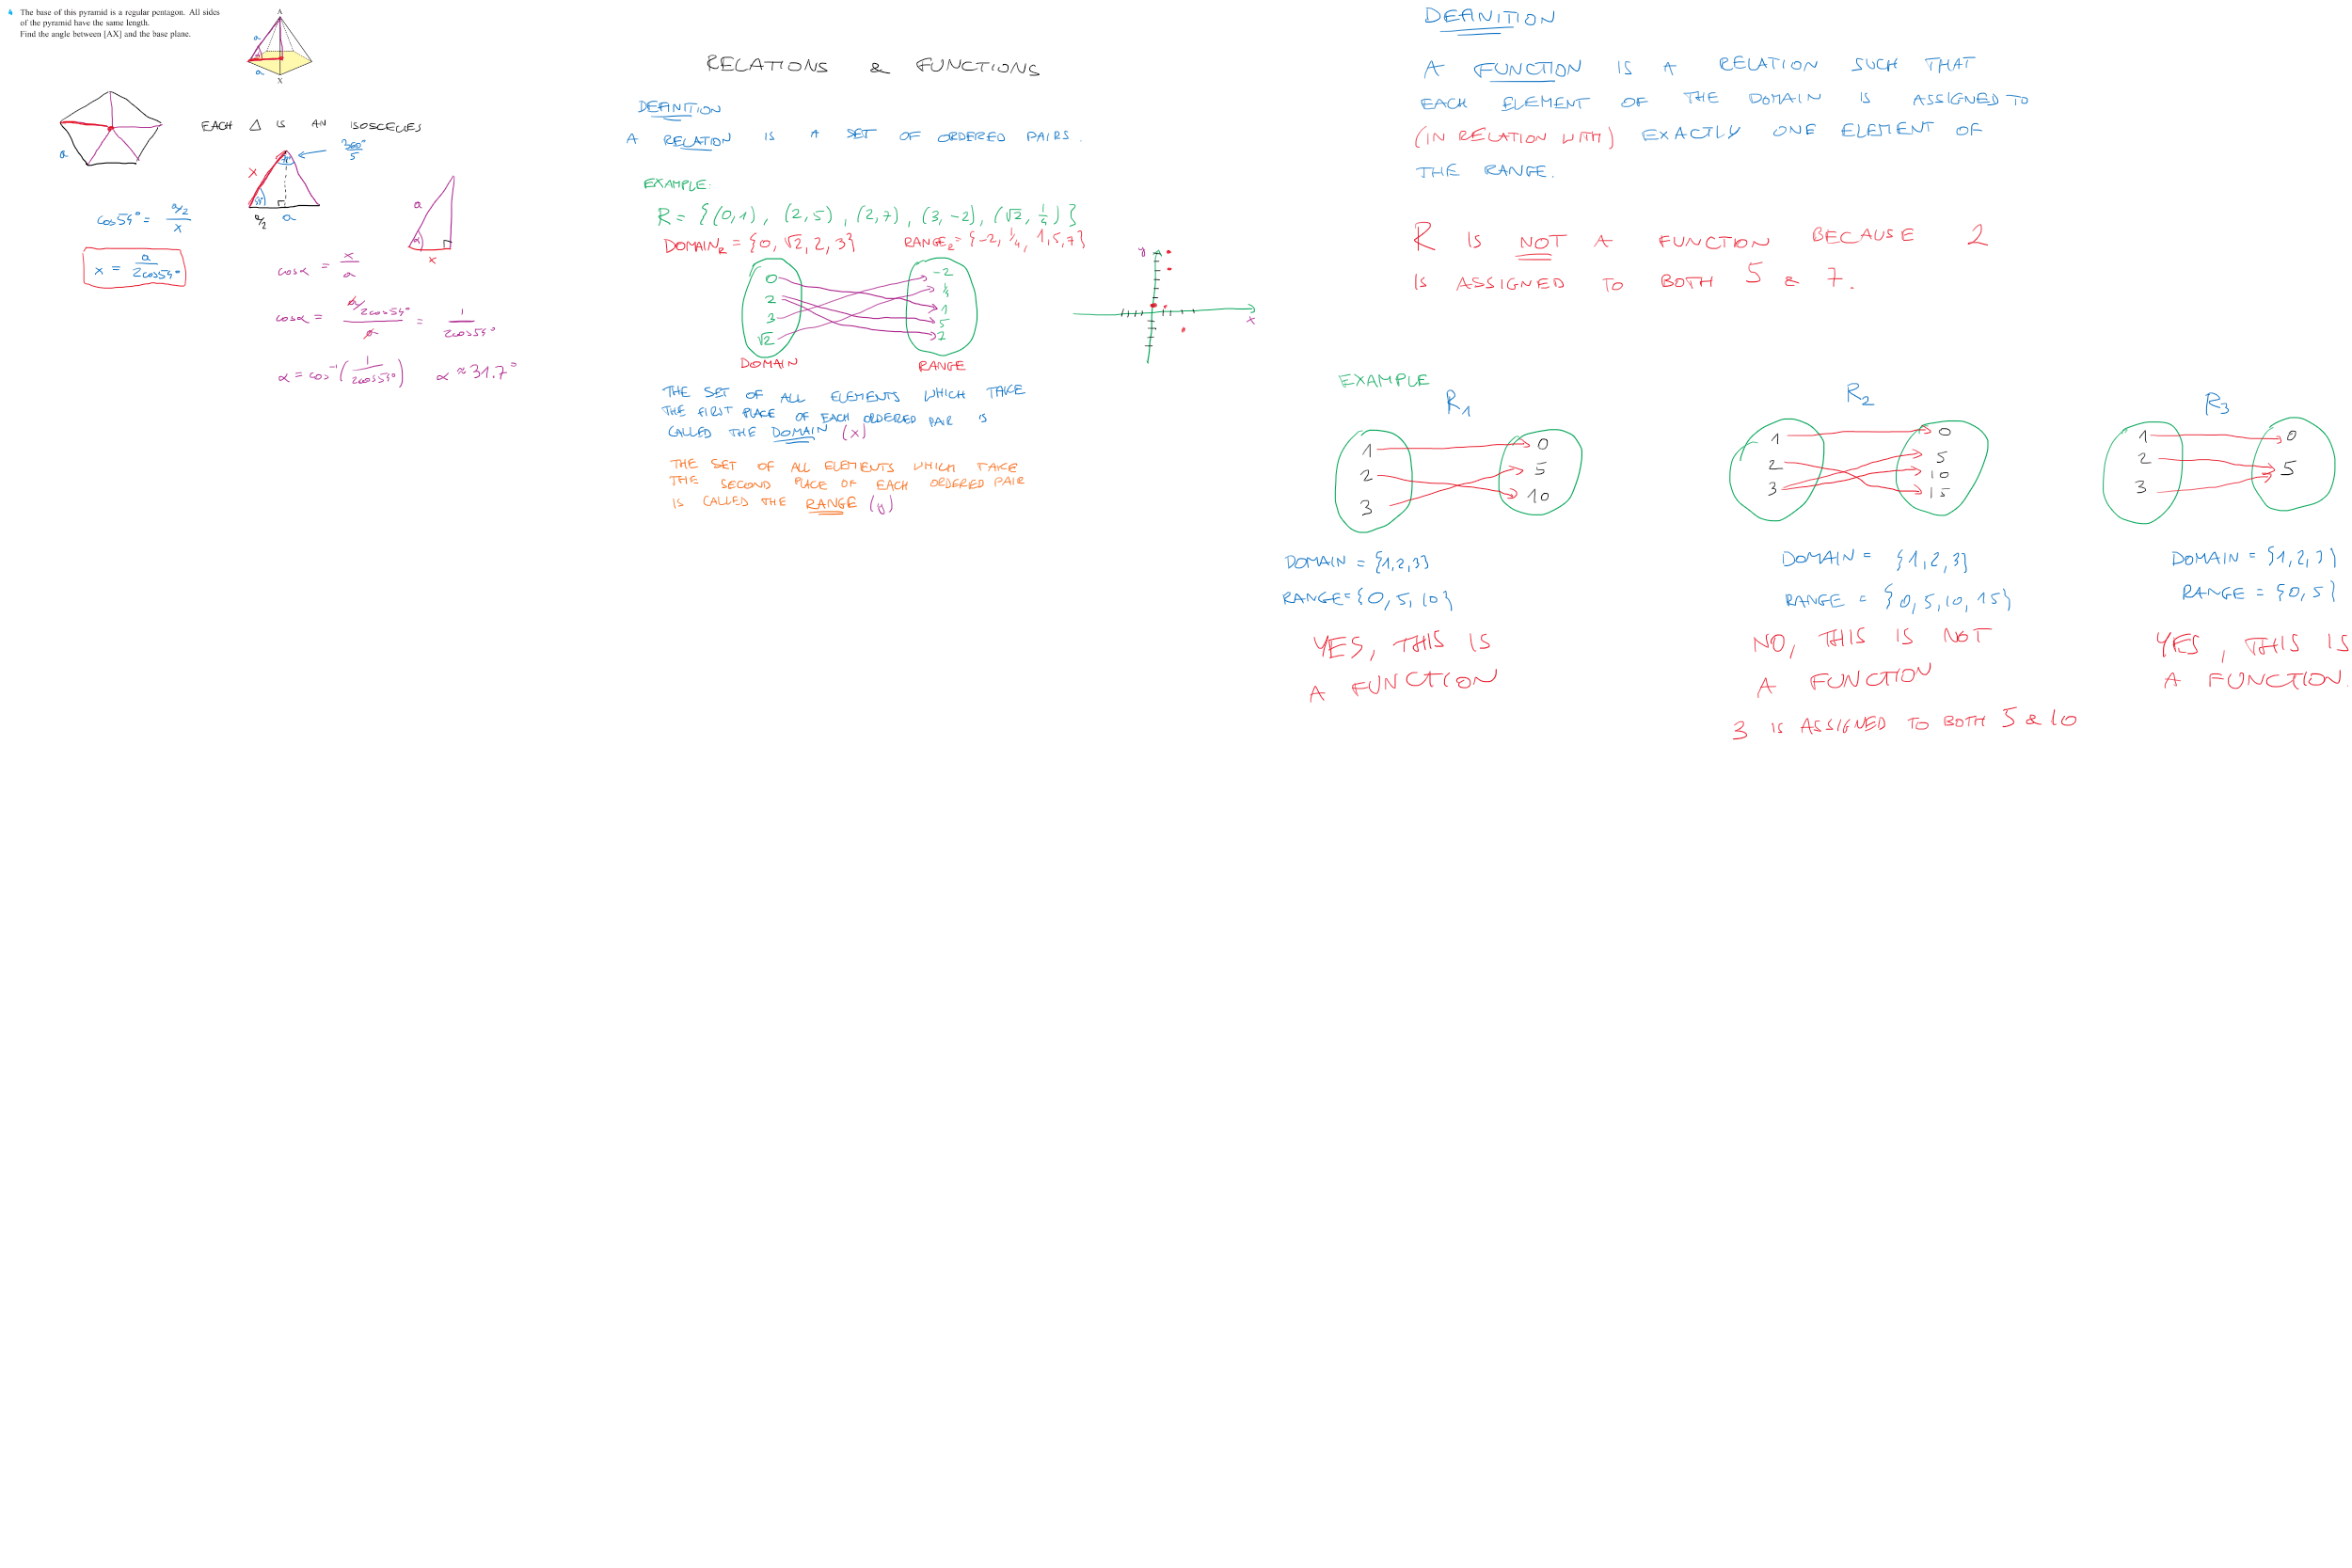 4 The base of this pyramid is a regular pentagon. All sides
of the pyramid have the same length.
Find the angle between [AX] and the base plane.
A
a
a
X
a
EACH △ IS AN ISOSCELES
360°/5
72°
x
54°
a/2
a
cos54° = (a/2)/x
x = a/(2cos54°)
a
α
x
cosα = x/a
cosα = (a/2cos54°)/a = 1/(2cos54°)
α = cos⁻¹(1/(2cos54°)) α ≈ 31.7°
RELATIONS & FUNCTIONS
DEFINITION
A RELATION IS A SET OF ORDERED PAIRS.
EXAMPLE:
R = {(0,1), (2,5), (2,7), (3,-2), (√2, 1/4)}
DOMAIN_R = {0, √2, 2, 3} RANGE_R = {-2, 1/4, 1, 5, 7}
0
2
3
√2
-2
1/4
1
5
7
DOMAIN RANGE
y
x
THE SET OF ALL ELEMENTS WHICH TAKE
THE FIRST PLACE OF EACH ORDERED PAIR IS
CALLED THE DOMAIN (x)
THE SET OF ALL ELEMENTS WHICH TAKE
THE SECOND PLACE OF EACH ORDERED PAIR
IS CALLED THE RANGE (y)
DEFINITION
A FUNCTION IS A RELATION SUCH THAT
EACH ELEMENT OF THE DOMAIN IS ASSIGNED TO
(IN RELATION WITH) EXACTLY ONE ELEMENT OF
THE RANGE.
R IS NOT A FUNCTION BECAUSE 2
IS ASSIGNED TO BOTH 5 & 7.
EXAMPLE
R₁
1
2
3
0
5
10
DOMAIN = {1,2,3}
RANGE = {0, 5, 10}
YES, THIS IS
A FUNCTION
R₂
1
2
3
0
5
10
15
DOMAIN = {1,2,3}
RANGE = {0,5,10,15}
NO, THIS IS NOT
A FUNCTION
3 IS ASSIGNED TO BOTH 5 & 10
R₃
1
2
3
0
5
DOMAIN = {1,2,3}
RANGE = {0,5}
YES, THIS IS
A FUNCTION.